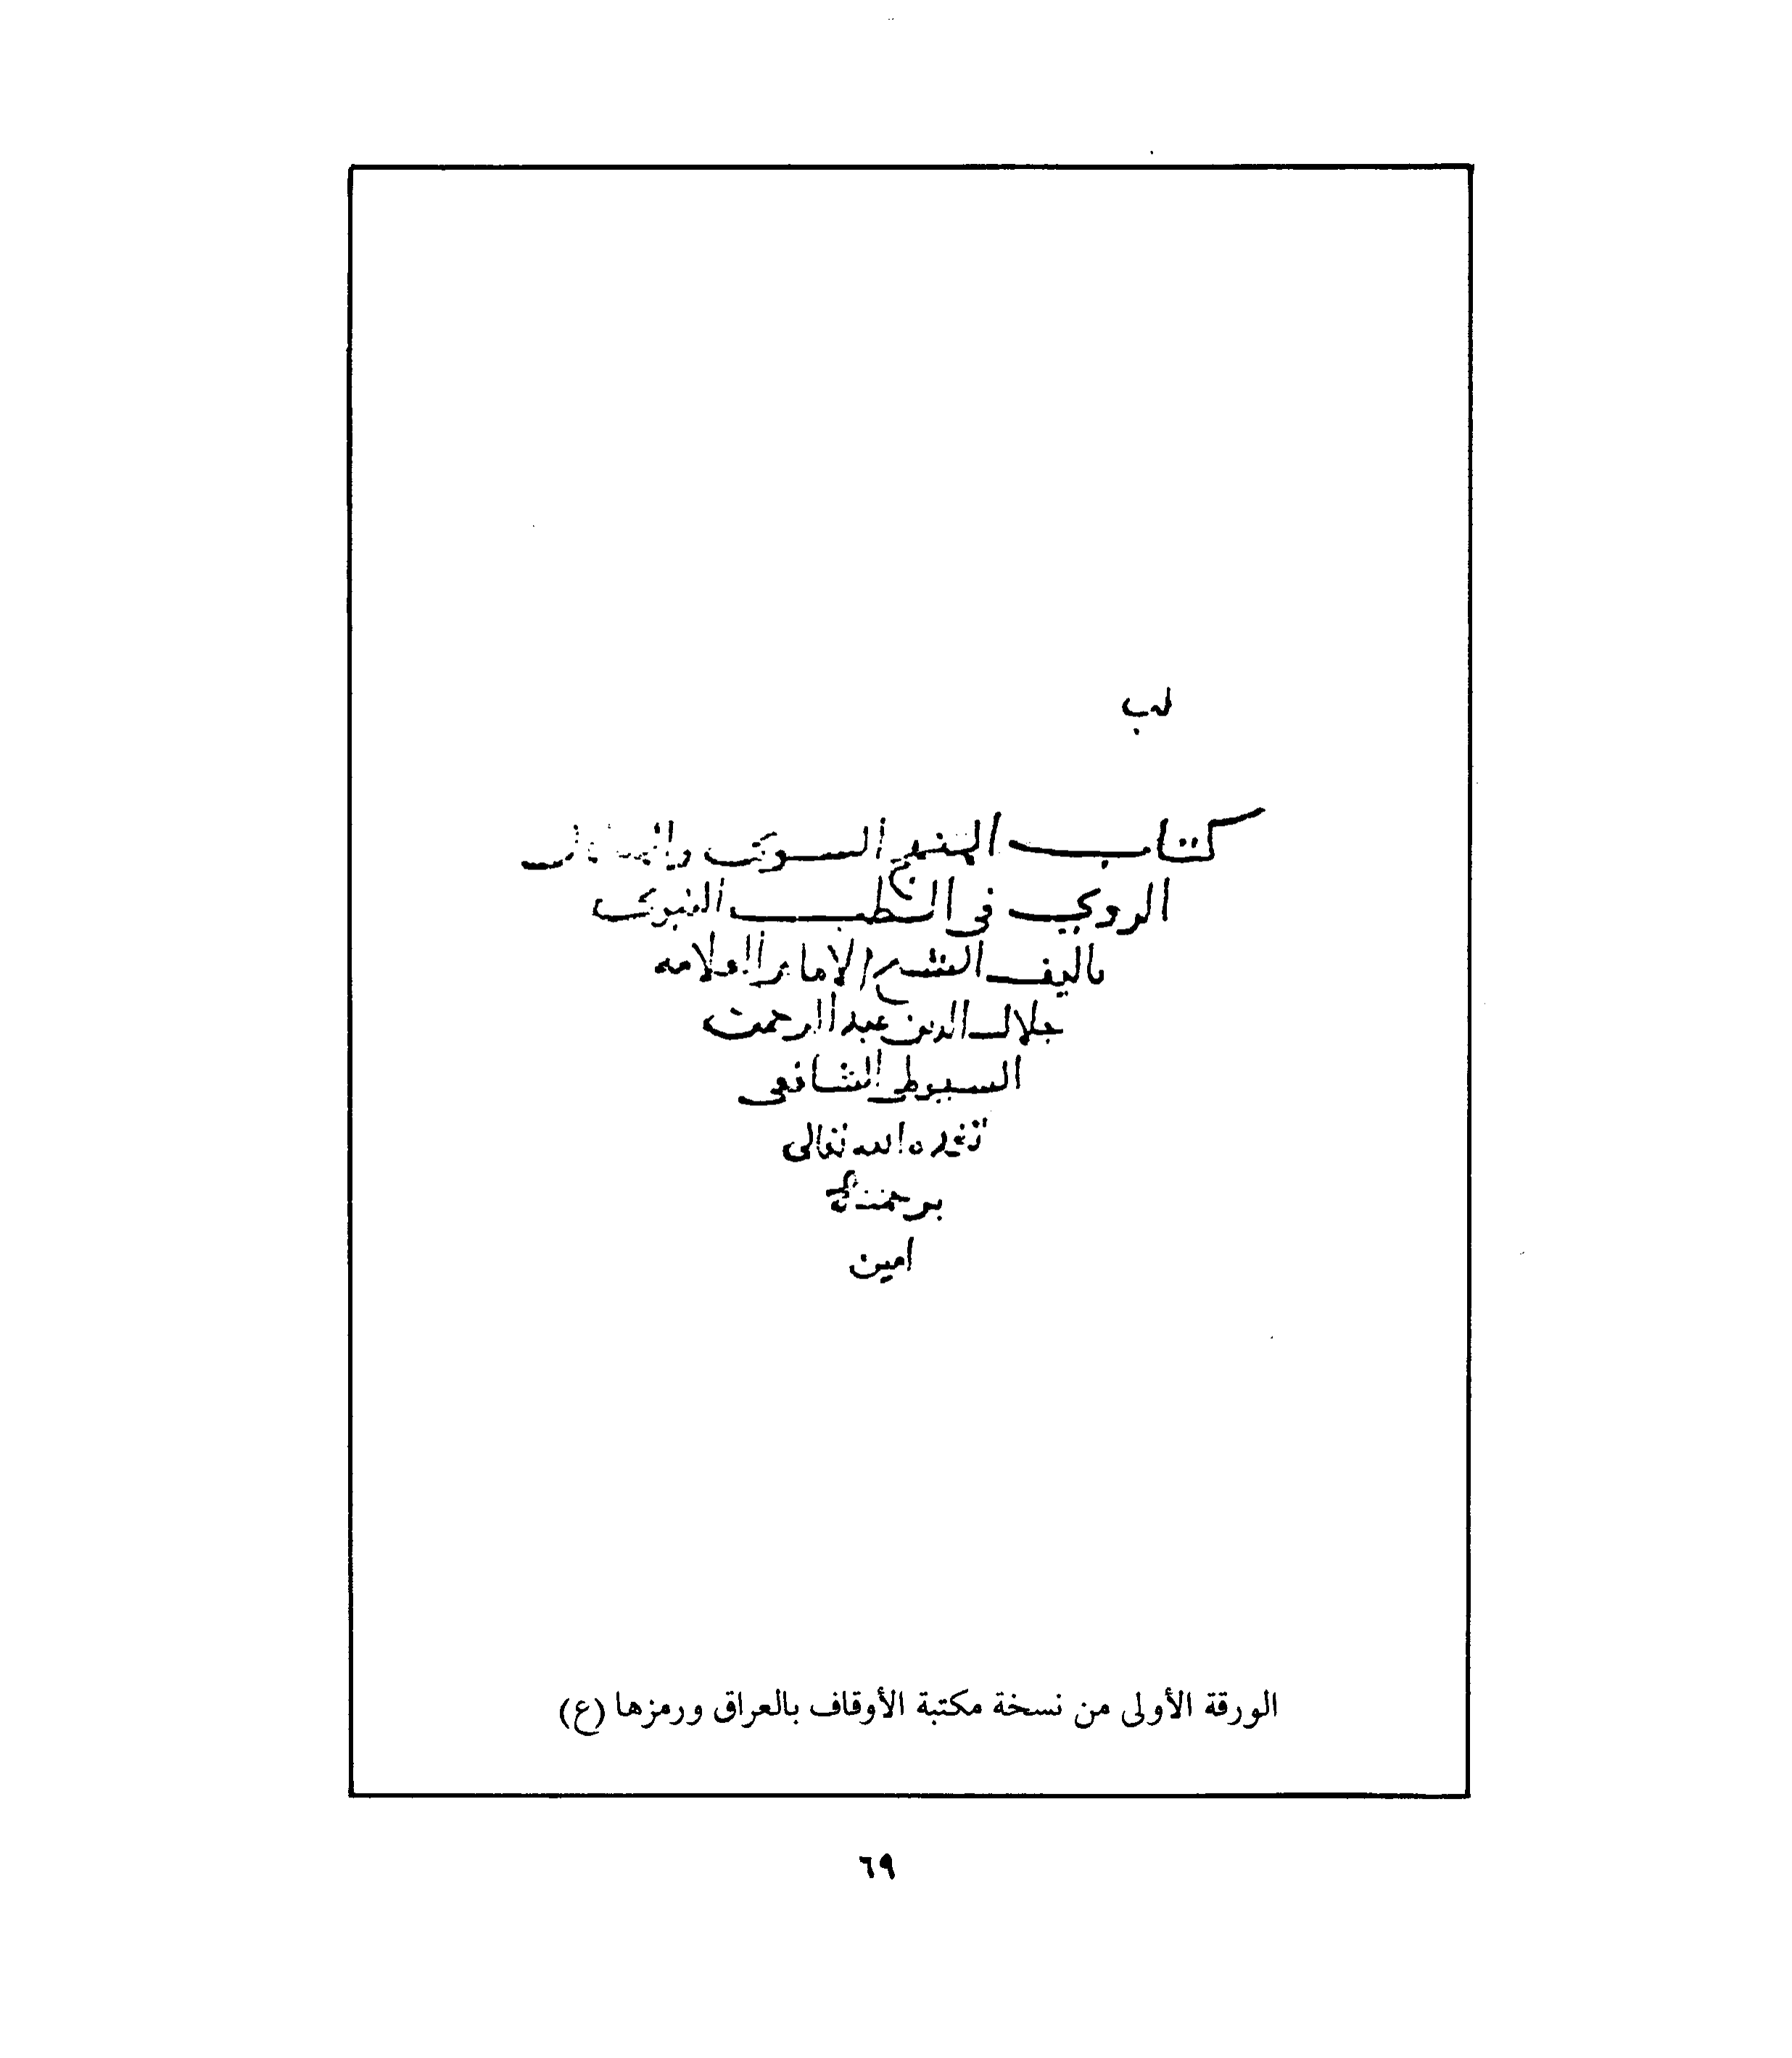 كتاب المنهج السوي والمنهل
الروي في الطب النبوي
تاليف الشيخ الامام العلامه
جلال الدين عبد الرحمن
السيوطي الشافعي
تغمده الله تعالى
برحمته
امين
الورقة الأولى من نسخة مكتبة الأوقاف بالعراق ورمزها (ع)
٦٩